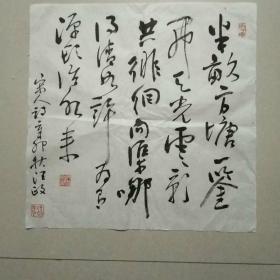 半亩方塘一鉴
开天光云影
共徘徊问渠哪
得清如许为有
源头活水来
宋人诗辛卯秋汪政